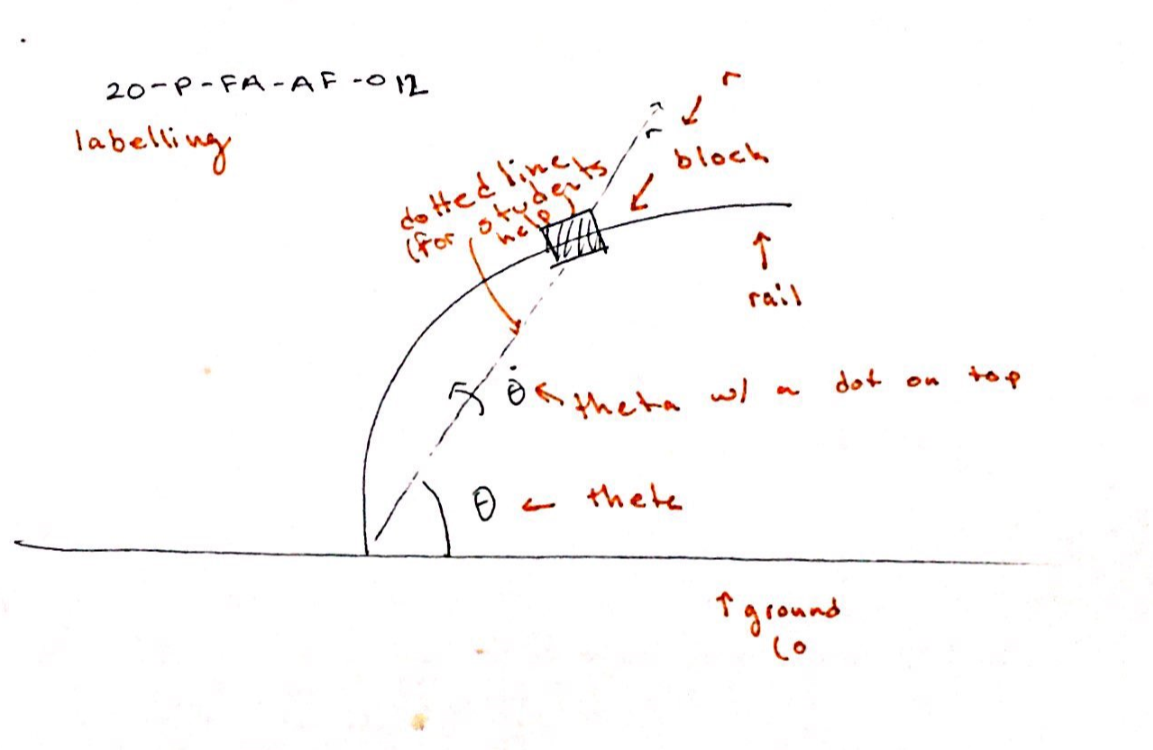 20-P-FA-AF-012
labelling
r
r
block
dotted line
(for students
help)
rail
θ̇ ← theta w/ a dot on top
θ ← theta
↑ ground
(o